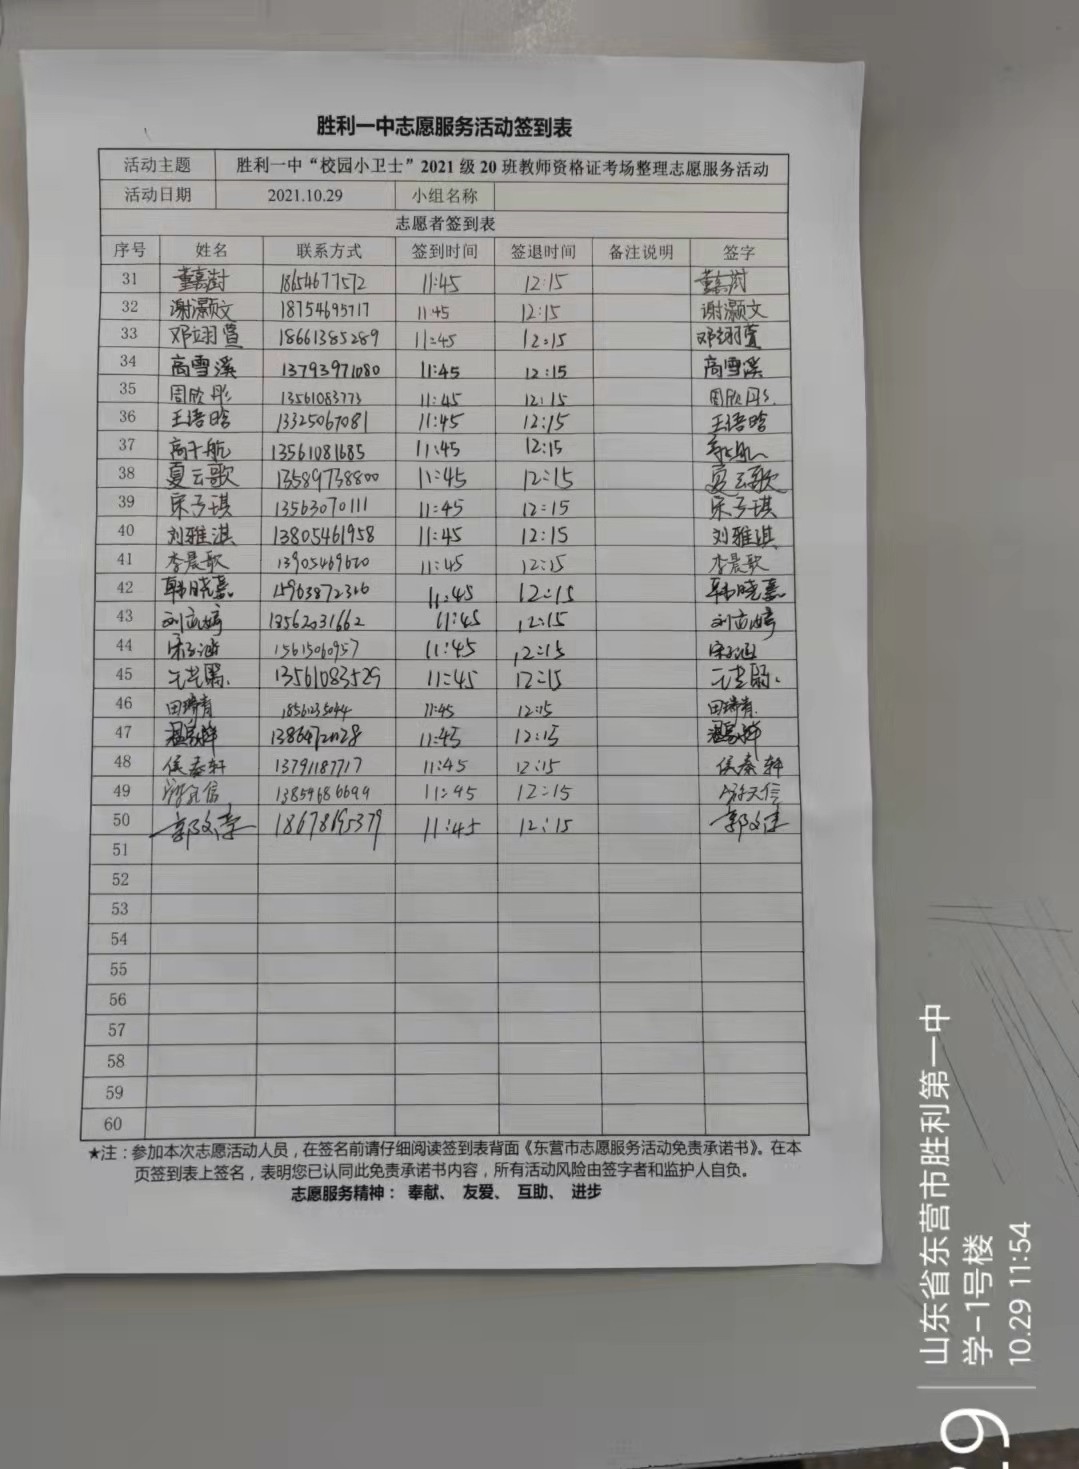 胜利一中志愿服务活动签到表
活动主题 胜利一中“校园小卫士”2021级20班教师资格证考场整理志愿服务活动
活动日期 2021.10.29 小组名称
志愿者签到表
序号 姓名 联系方式 签到时间 签退时间 备注说明 签字
31 18654677572 11:45 12:15
32 谢灏文 18754695717 11:45 12:15 谢灏文
33 邓翊萱 18661385289 11:45 12:15 邓翊萱
34 高雪溪 13793971080 11:45 12:15 高雪溪
35 周欣彤 13561083773 11:45 12:15 周欣彤
36 王语晗 13325067081 11:45 12:15 王语晗
37 高于航 13561081685 11:45 12:15
38 夏云歌 13589738800 11:45 12:15 夏云歌
39 宋子琪 13563070111 11:45 12:15 宋子琪
40 刘雅淇 13805461958 11:45 12:15 刘雅淇
41 李晨歌 13905469620 11:45 12:15 李晨歌
42 韩晓嘉 11:45 12:15 韩晓嘉
43 13562031662 11:45 12:15
44 宋子涵 15615060957 11:45 12:15 宋子涵
45 13561083529 11:45 12:15
46 田瑞青 18561235044 11:45 12:15 田瑞青
47 11:45 12:15
48 侯秦轩 13791187717 11:45 12:15 侯秦轩
49 13859686699 11:45 12:15
50 郭文佳 18678195379 11:45 12:15 郭文佳
51
52
53
54
55
56
57
58
59
60
★注：参加本次志愿活动人员，在签名前请仔细阅读签到表背面《东营市志愿服务活动免责承诺书》。在本
页签到表上签名，表明您已认同此免责承诺书内容，所有活动风险由签字者和监护人自负。
志愿服务精神： 奉献、 友爱、 互助、 进步
山东省东营市胜利第一中
学-1号楼
10.29 11:54